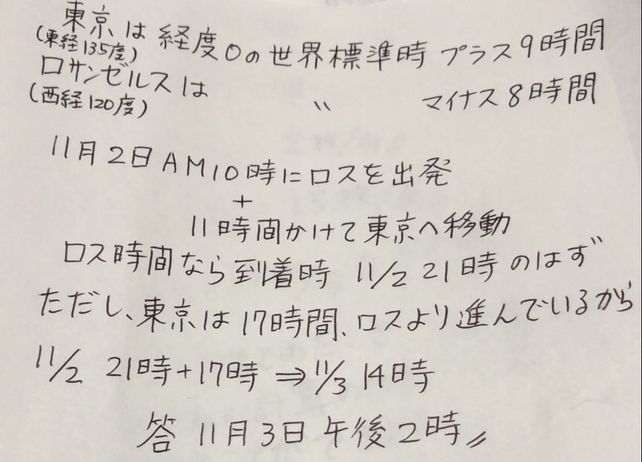 東京は経度0の世界標準時 プラス9時間
(東経135度)
ロサンゼルスは 〃 マイナス8時間
(西経120度)
11月2日AM10時にロスを出発
+
11時間かけて東京へ移動
ロス時間なら到着時 11/2 21時のはず
ただし、東京は17時間、ロスより進んでいるから
11/2 21時+17時⇒11/3 14時
答 11月3日午後2時〃